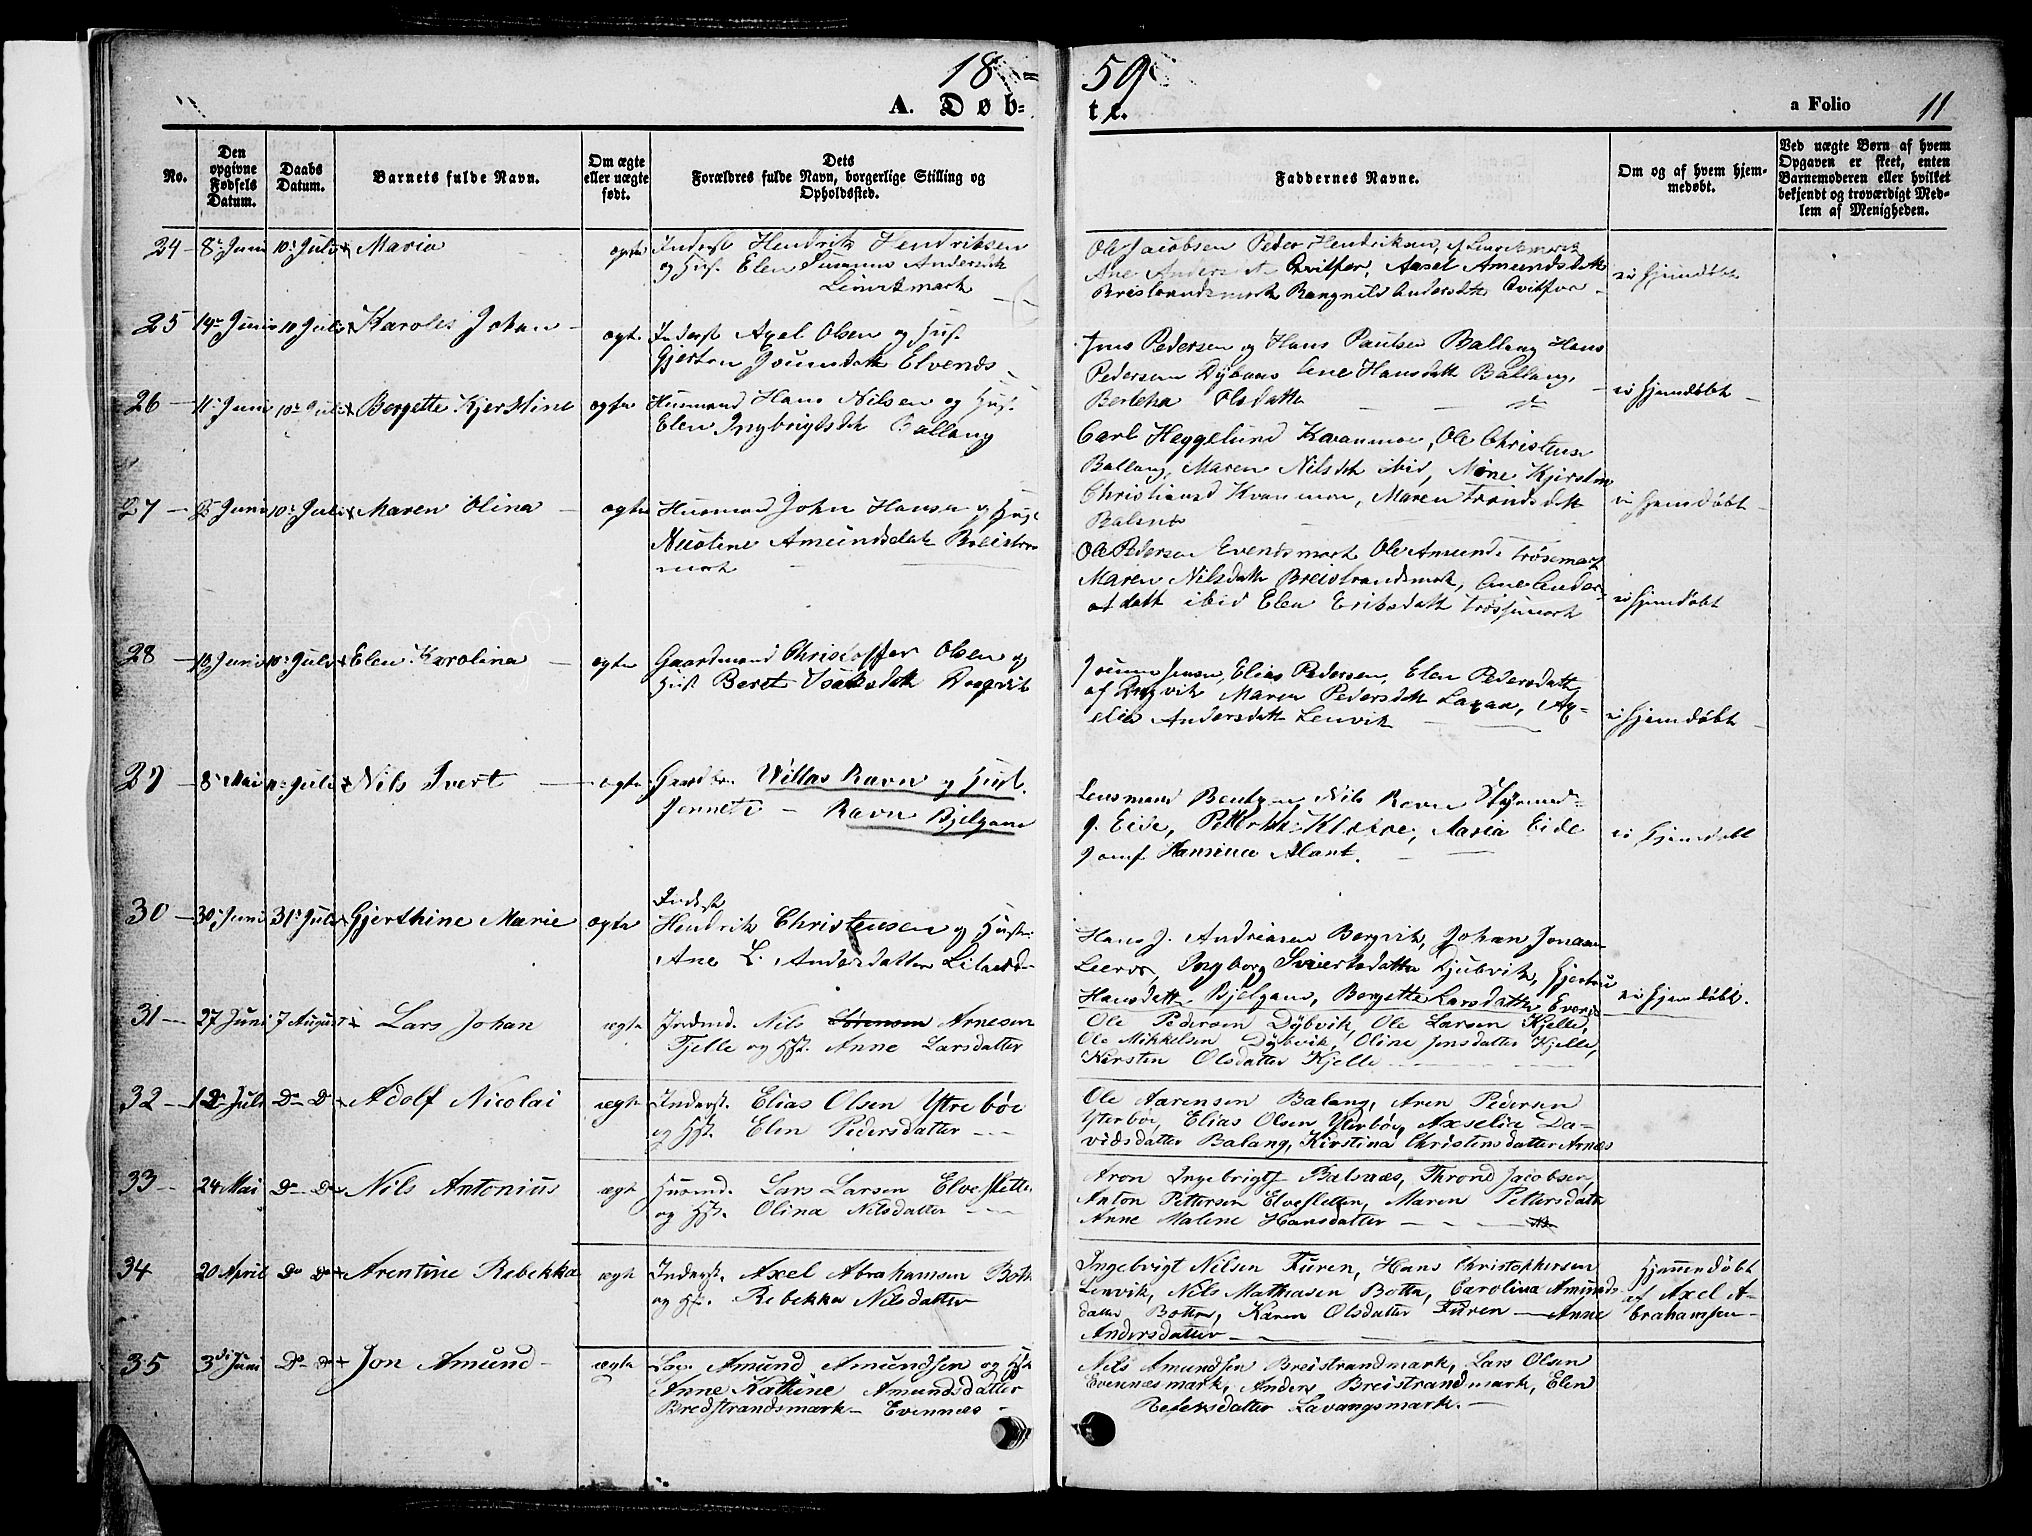 18 59
A. Døb- te.
a Folio 11
No.
Den opgivne Fødsels Datum.
Daabs Datum.
Barnets fulde Navn.
Om ægte eller uægte født.
Dets Forældres fulde Navn, borgerlige Stilling og Opholdssted.
Faddernes Navne.
Om og af hvem hjemmedøbt.
Ved uægte Børn af hvem Opgaven er skeet, enten Barnemoderen eller hvilket bekjendt og troværdigt Medlem af Menigheden.
24 8 Juni 10 Juli Maria
ægte Inderst Hendrik Hendriksen
og Hust. Elen Susanna Andersdtt
Lenvikmark
Ole Jacobsen Peder Hendriksen, af Lenvikmark
Ane Andersdtt Qvitfor, Axsel Amundsdtt
Breistrandsmark Rangnild Andersdtt Qvitfor
ei hjemdøbt
25 14 Juni 10 Juli Karoles Johan
ægte Inderst Axel Olsen og Hust.
Gjertru Joumsdtt Elvenes
Jens Pedersen og Hans Paulsen Ballang Hans
Pedersen Dybaas Ane Hansdatt Ballang,
Bertha Olsdatte do
ei hjemdøbt
26 11 Juni 10 Juli Bergette Kjerstine
ægte Husmand Hans Nilsen og Hust.
Elen Ingbrigtsdtt Ballang
Carl Heggelund Kvanmoe, Ole Christens
Ballang, Maren Nilsdtt ibid, Mone Kjersten
Christiansd Kvanmoe, Maren Trondsdtt
Balsnes
ei hjemdøbt
27 25 Juni 10 Juli Maren Olina
ægte Husmand John Hansen og Hust
Nicoline Amundsdatt Breistran
mark
Ole Pedersen Evendsmark Ole Amunds Trøsemark
Maren Nilsdatt Breistrandsmark, Ane Ander-
datt ibid Elen Eriksdatt Trøssemark
ei hjemdøbt
28 10 Juni 10 Juli Elen Karolina
ægte Gaardmand Christoffer Olsen og
Hust Beret Isaksdtt Dragvik
Joum Jensen, Elias Pedersen, Elen Pedersdatt
af Dragvik Maren Pedersdtt Laxaa, Ax-
elia Andersdatt Lenvik
ei hjemdøbt
29 8 Mai 10 Juli Nils Ivert
ægte Gaardbr. Willas Ravn og Hust.
Jennete Ravn Bjelgam
Lensmand Bentzen Nils Ravn
J. Eide, Petterk Klæboe, Maria Eide
Jomf Hansina Alant.
ei hjemdøbt
30 30 Juni 31 Juli Gjerthine Marie
ægte Inderst
Hendrik Christensen og Hust.
Ane L. Andersdatter Liland
Hans J. Andreasen Bergvik, Johan Jonasen
Leeros, Ingborg Siviertsdatter Kjubvik, Gjertru
Hansdatt Bjelgam, Bergette Larsdatter Evenes
ei hjemdøbt.
31 27 Juni 7 August Lars Johan
ægte Indmd. Nils Sørensen Arnesen
Fjelle og Hst. Anne Larsdatter
Ole Pedersen Dybvik, Ole Larsen Kjelle,
Ole Mikkelsen Dybvik, Oline Jensdatter Kjelle,
Kersten Olsdatter Kjelle
32 12 Juli Do Do Adolf Nicolai
ægte Inderst. Elias Olsen Ytrebøe
og Hst. Elen Pedersdatter
Ole Aarensen Balang, Aren Pedersen
Yterbøe, Elias Olsen Yterbøe, Axselia Da-
vidsdatter Balang, Kirstina Christensdatter Arnes
33 24 Mai Do Do Nils Antonius
ægte Husmd. Lars Larsen Elvesletten
og Hst. Olina Nilsdatter
Aron Ingebrigt Balsnæs, Thrond Jacobsen,
Anton Pettersen Elvesletten, Maren Pettersdatt
Anne Malene Hansdatter
34 20 April Do Do Arentine Rebekka
ægte Inderst. Axel Abrahamsen Botn
og Hst. Rebekka Nilsdatter
Ingebrigt Nilsen Furen, Hans Christophersen
Lenvik, Nils Mathiasen Botten, Carolina Amunds-
datter Botten, Karen Olsdatter Furen Anne
Andersdatter
Hjemmedøbt
af Axel A-
brahamsen
35 3die Juni Do Do Jon Amund
ægte Lap. Amund Amundsen og Hst
Anne Kathine Amundsdatter
Bredstrandsmark Evennæs
Nils Amundsen Breistrandmark, Lars Olsen
Evennæsmark, Anders Breistrandmark, Elen
Pedersdatter Lavangsmark.